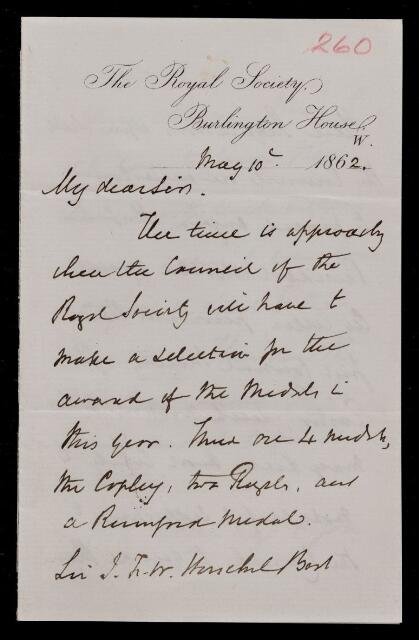 260
The Royal Society,
Burlington House,
W.
May 10 1862.
My dear Sir.
The time is approachg
when the Council of the
Royal Society will have to
make a selection for the
award of the Medals in
this year. There are 4 medals,
the Copley, two Royals, and
a Rumford Medal.
Sir J. F. W. Herschel Bart